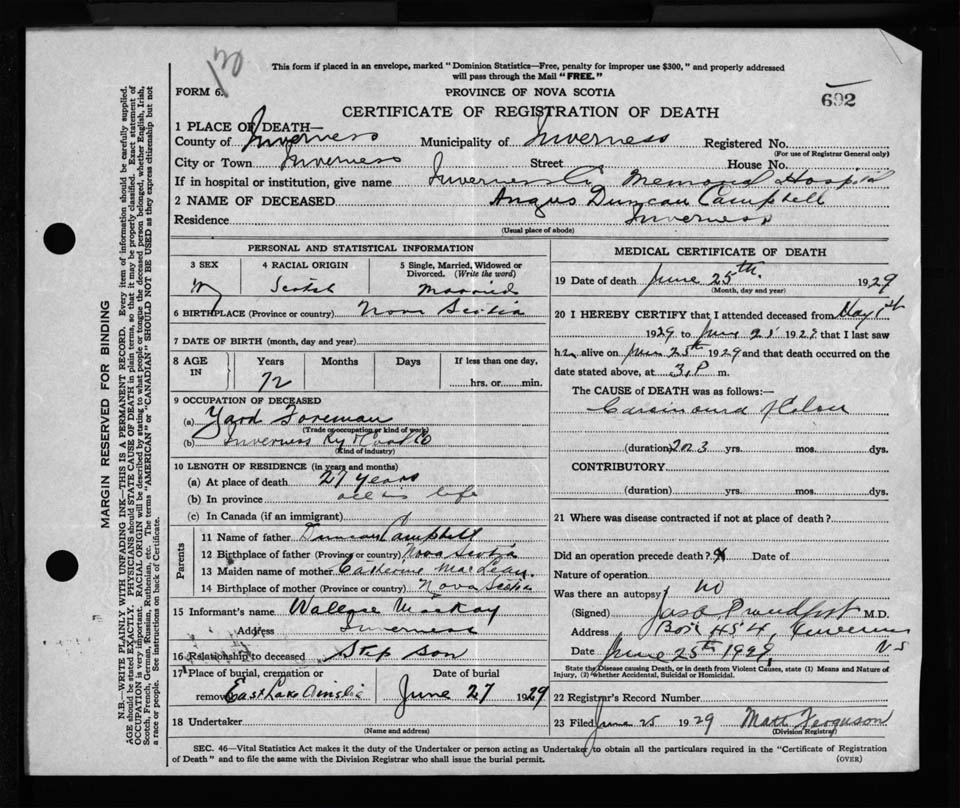 This form if placed in an envelope, marked "Dominion Statistics—Free, penalty for improper use $300," and properly addressed
will pass through the Mail "FREE."
FORM 6.
PROVINCE OF NOVA SCOTIA
692
CERTIFICATE OF REGISTRATION OF DEATH
1 PLACE OF DEATH—
County of Inverness Municipality of Inverness Registered No.
(For use of Registrar General only)
City or Town Inverness Street House No.
If in hospital or institution, give name Inverness Co Memorial Hospital
2 NAME OF DECEASED Angus Duncan Campbell
Residence Inverness
(Usual place of abode)
PERSONAL AND STATISTICAL INFORMATION
3 SEX 4 RACIAL ORIGIN 5 Single, Married, Widowed or Divorced. (Write the word)
M Scotch Married
6 BIRTHPLACE (Province or country) Nova Scotia
7 DATE OF BIRTH (month, day and year)
8 AGE IN Years Months Days If less than one day,
72 hrs. or min.
9 OCCUPATION OF DECEASED
(a) Yard Foreman
(Trade or occupation or kind of work)
(b) Inverness Ry & Coal Co
(Kind of industry)
10 LENGTH OF RESIDENCE (in years and months)
(a) At place of death 27 years
(b) In province all his life
(c) In Canada (if an immigrant)
Parents
11 Name of father Duncan Campbell
12 Birthplace of father (Province or country) Nova Scotia
13 Maiden name of mother Catherine MacLean
14 Birthplace of mother (Province or country) Nova Scotia
15 Informant's name Wallace McKay
Address Inverness
16 Relationship to deceased Step son
17 Place of burial, cremation or removal Date of burial
East Lake Ainslie June 27 1929
18 Undertaker
(Name and address)
MEDICAL CERTIFICATE OF DEATH
19 Date of death June 25th 1929
(Month, day and year)
20 I HEREBY CERTIFY that I attended deceased from May
1929 to June 25 1929 that I last saw
h alive on June 25th 1929 and that death occurred on
date stated above, at 3 P m.
The CAUSE of DEATH was as follows:—
Carcinoma of Colon
(duration) 2 or 3 yrs. mos. dys.
CONTRIBUTORY
(duration) yrs. mos. dys.
21 Where was disease contracted if not at place of death?
Did an operation precede death? Date of
Nature of operation
Was there an autopsy? no
(Signed) Jas A Proudfoot M.D.
Address Box 454, Inverness
Date June 25th 1929, NS
State the Disease causing Death, or in death from Violent Causes, state (1) Means and Nature of
Injury, (2) whether Accidental, Suicidal or Homicidal.
22 Registrar's Record Number
23 Filed June 25 1929 Matt Ferguson
(Division Registrar)
SEC. 46—Vital Statistics Act makes it the duty of the Undertaker or person acting as Undertaker to obtain all the particulars required in the "Certificate of Registration
of Death" and to file the same with the Division Registrar who shall issue the burial permit. (OVER)
MARGIN RESERVED FOR BINDING
N.B.—WRITE PLAINLY WITH UNFADING INK—THIS IS A PERMANENT RECORD. Every item of information should be carefully supplied.
AGE should be stated EXACTLY. PHYSICIANS should STATE CAUSE OF DEATH in plain terms, so that it may be properly classified. Exact statement of
OCCUPATION is very important. RACIAL ORIGIN will be described by stating to what people or tongue the deceased person belonged, whether English, Irish,
Scotch, French, German, Russian, Ruthenian, etc. The terms "AMERICAN" or "CANADIAN" SHOULD NOT BE USED as they express citizenship but not
a race or people. See instructions on back of Certificate.